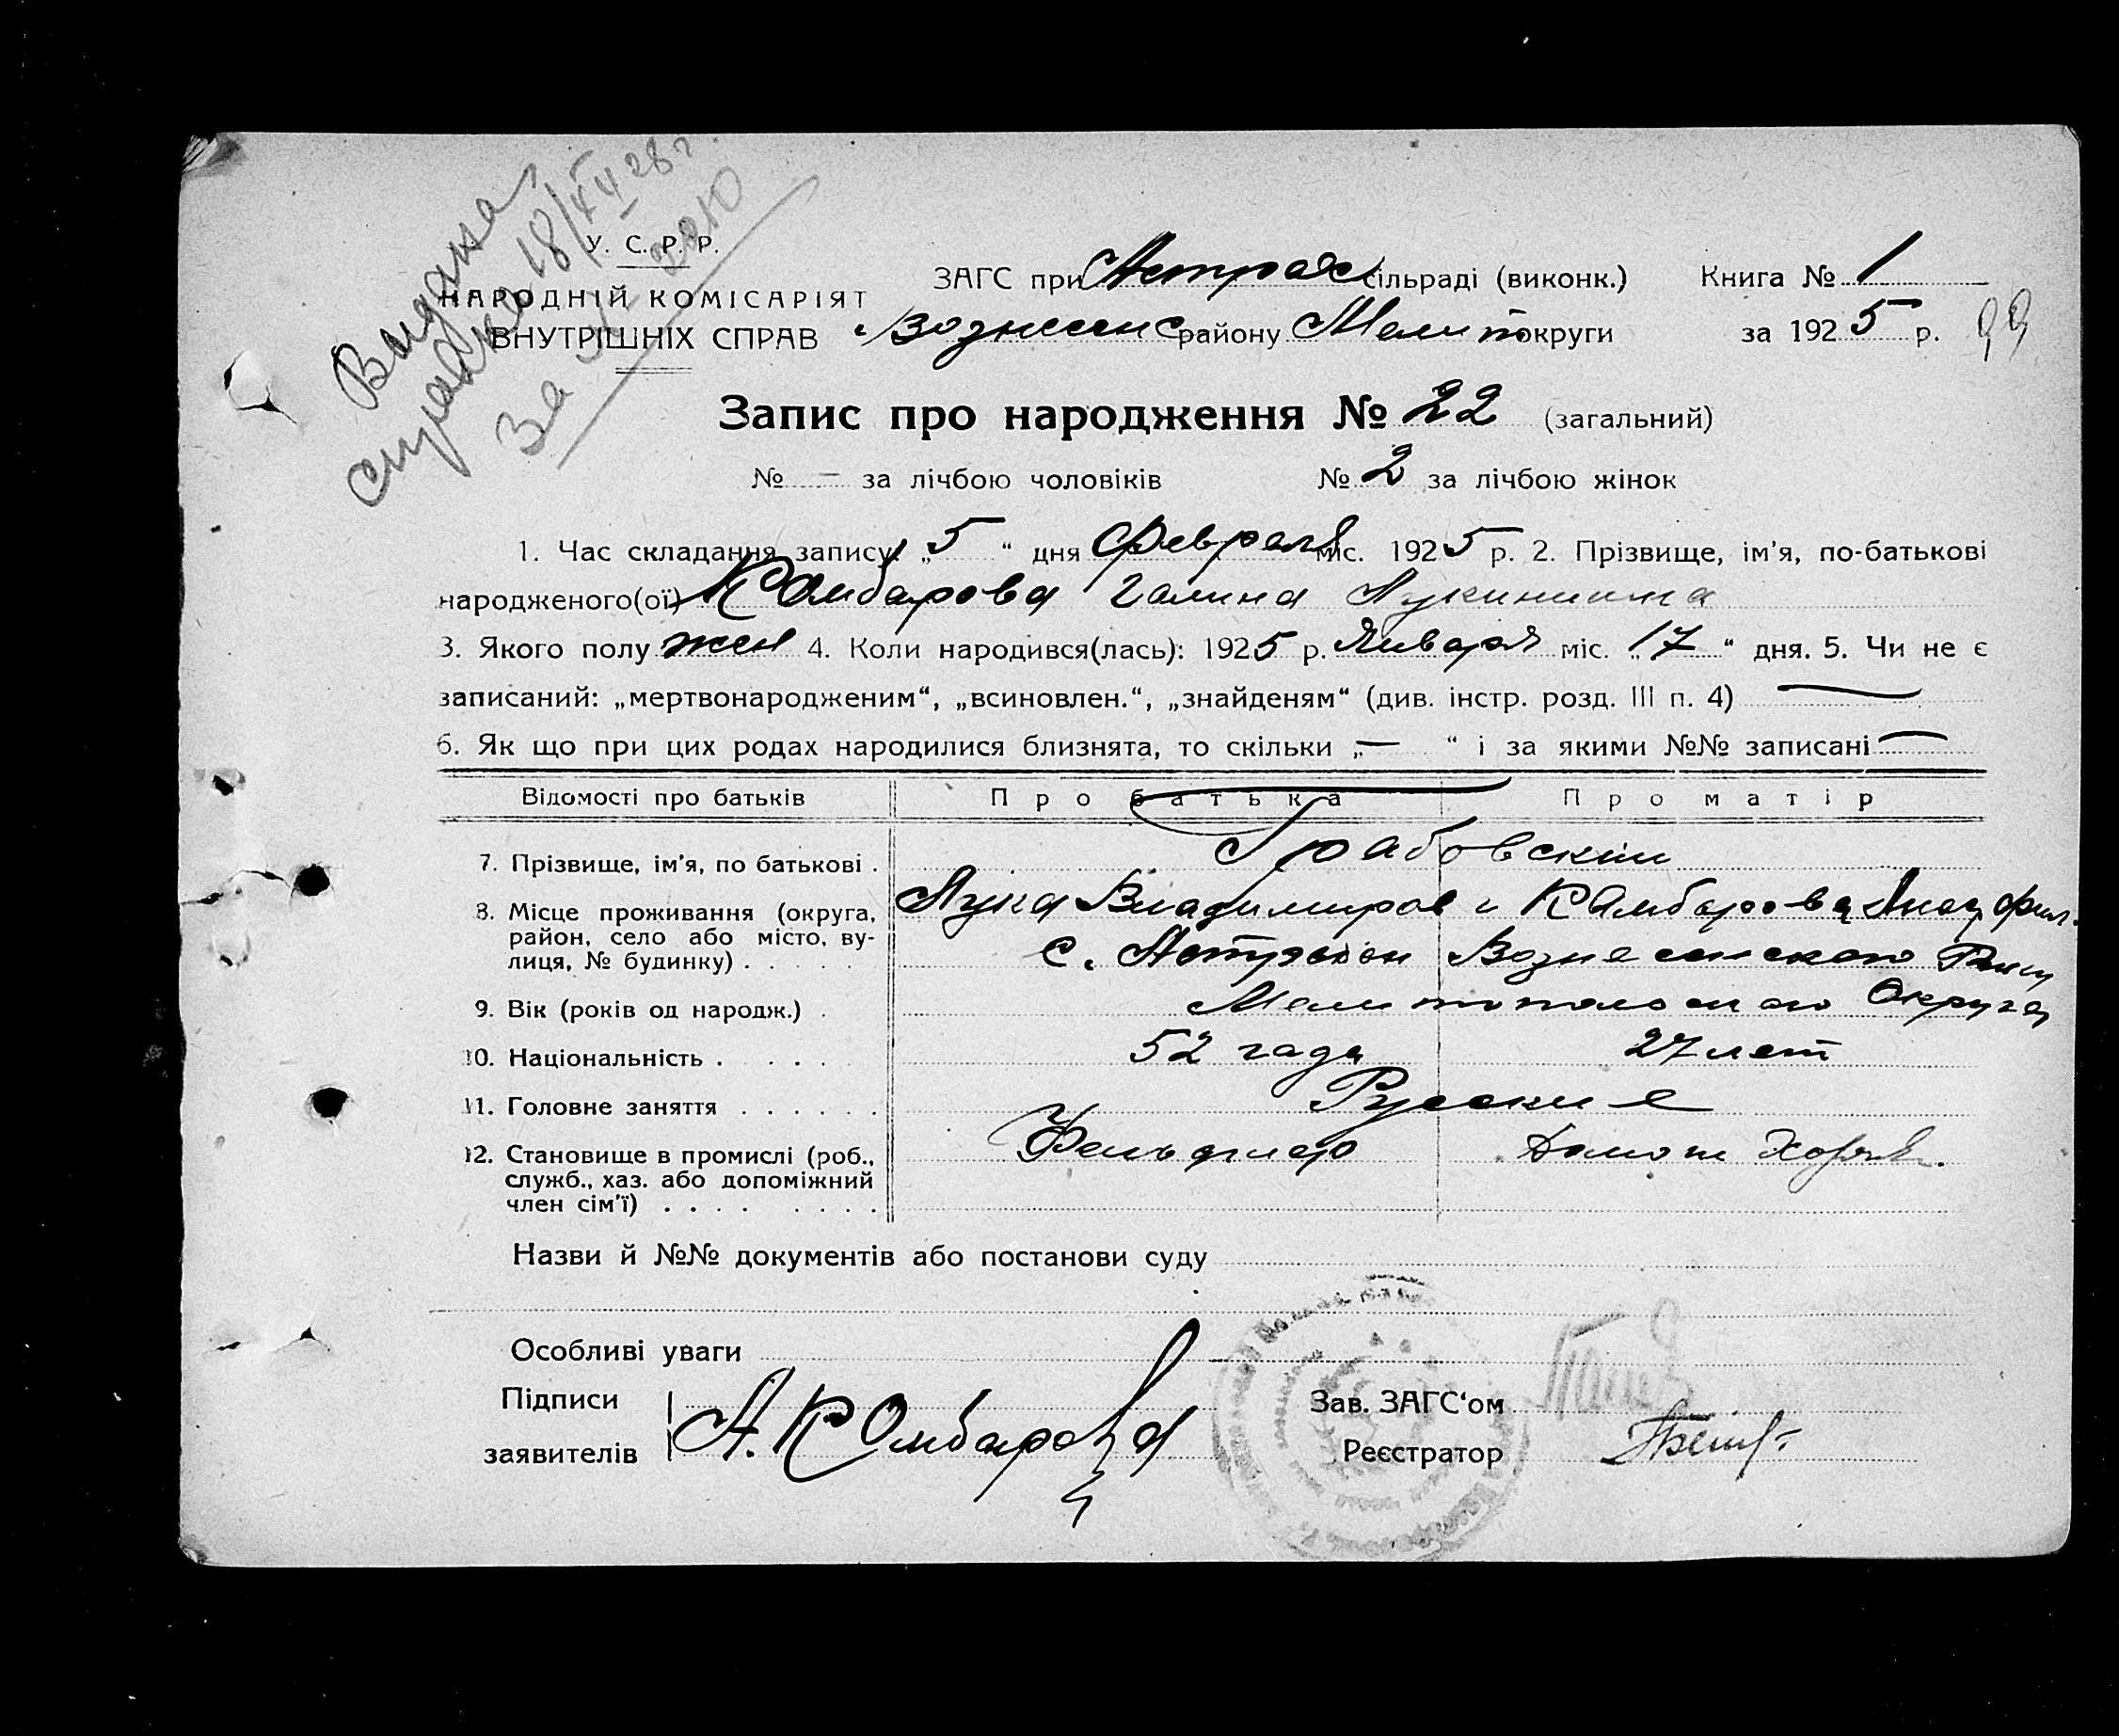 Видана
справка 18/XII 28 г.
За №
У. С. Р. Р.
НАРОДНІЙ КОМІСАРІЯТ
ВНУТРІШНІХ СПРАВ
ЗАГС при Астрах сільраді (виконк.) Книга № 1
Вознесенс району Мелитоп округи за 1925 р. 99
Запис про народження № 22 (загальний)
№ — за лічбою чоловіків № 2 за лічбою жінок
1. Час складання запису: „5“ дня Февраля міс. 1925 р. 2. Прізвище, ім'я, по-батькові
народженого(ої) Камбарова Галина Лукинишна
3. Якого полу жен 4. Коли народився(лась): 1925 р. Января міс. „17“ дня. 5. Чи не є
записаний: „мертвонародженим“, „всиновлен.“, „знайденям“ (див. інстр. розд. III п. 4) —
6. Як що при цих родах народилися близнята, то скільки „—“ і за якими №№ записані —
Відомості про батьків Про батька Про матір
7. Прізвище, ім'я, по батькові . Грабовский
8. Місце проживання (округа, Лука Владимиров и Камбарова Фил.
район, село або місто, ву- с. Вознесенского
лиця, № будинку) . . . . .
9. Вік (років од народж.) . Мелитопольского Округа
10. Національність . . . . . 52 года 27 лет
11. Головне заняття . . . . . . Русские
12. Становище в промислі (роб., Фельдшер Домаш Хозяй.
служб., хаз. або допоміжний
член сім'ї) . . . . . . . .
Назви й №№ документів або постанови суду
Особливі уваги
Підписи
заявителів А. Камбарова
Зав. ЗАГС'ом
Реєстратор